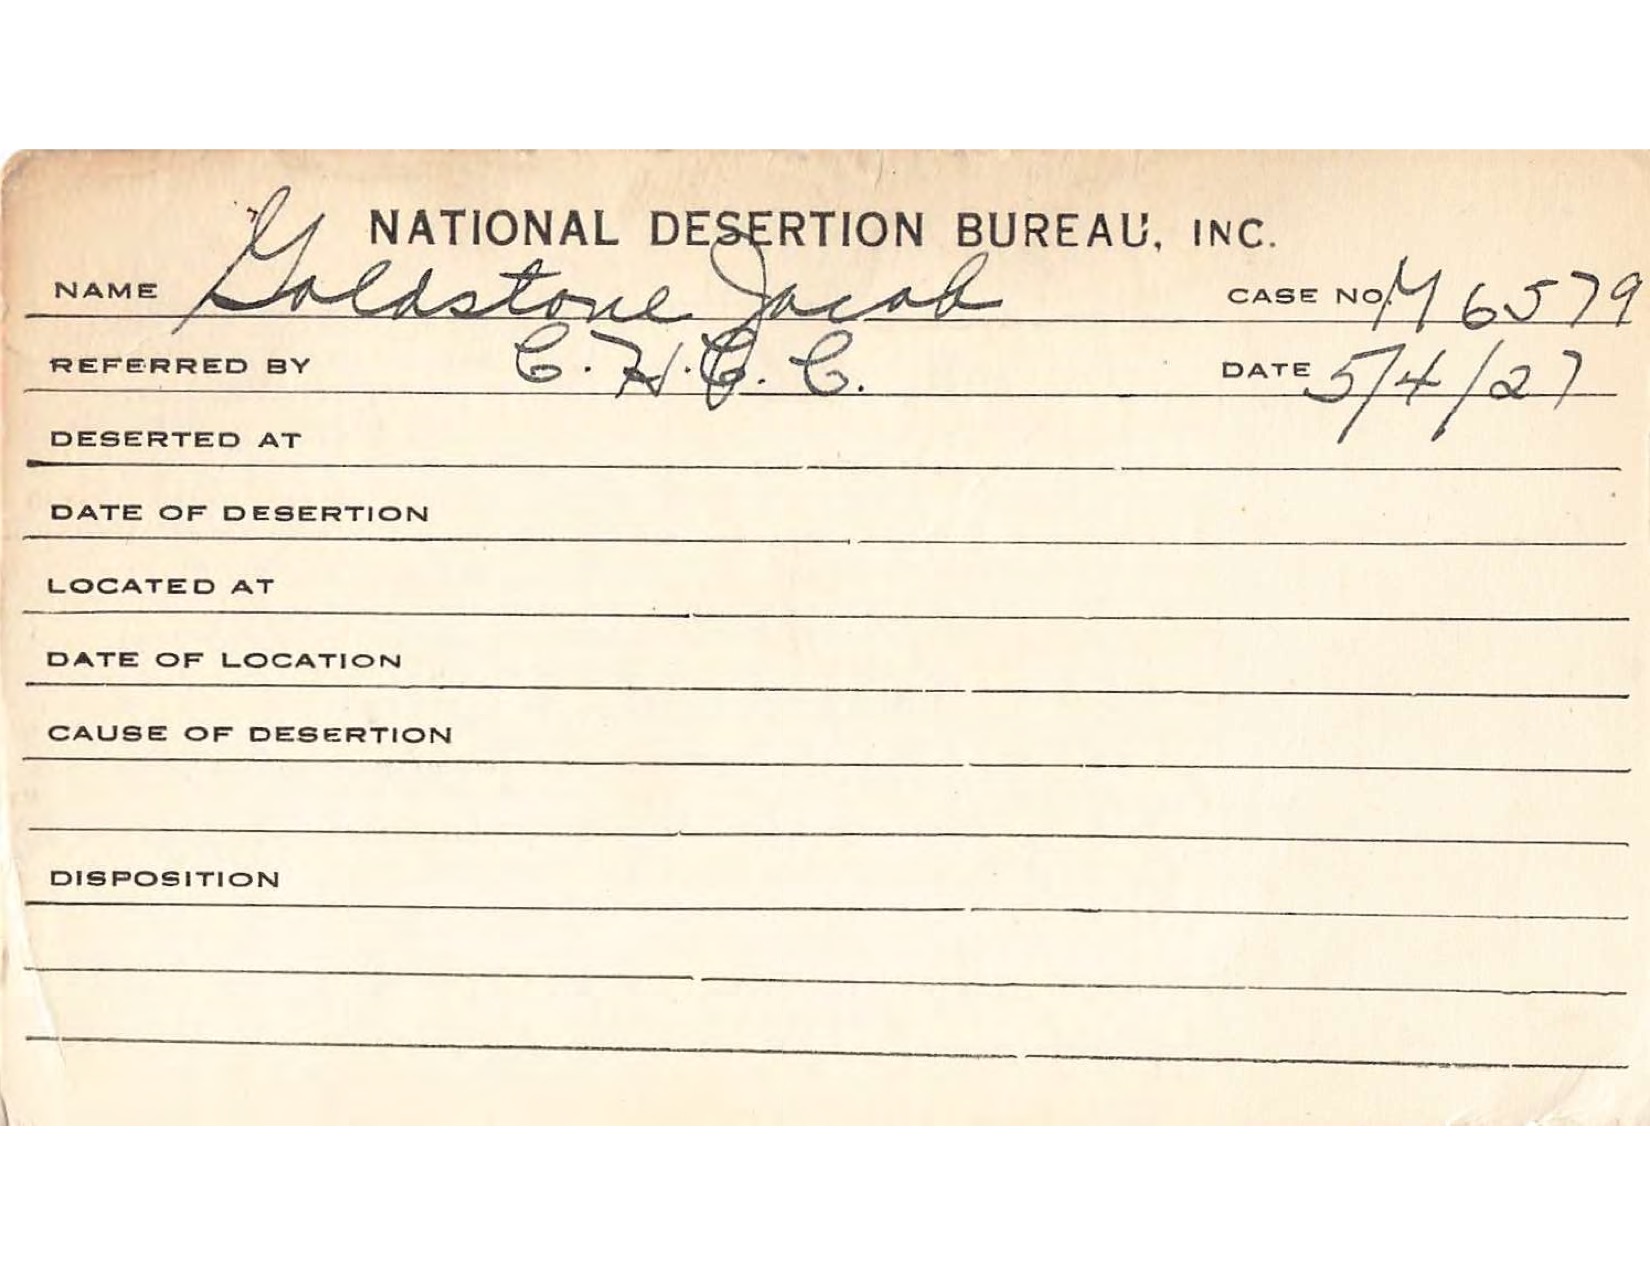 NATIONAL DESERTION BUREAU, INC.
NAME Goldstone Jacob CASE NO. M 6579
REFERRED BY C.H.C.C. DATE 5/4/27
DESERTED AT
DATE OF DESERTION
LOCATED AT
DATE OF LOCATION
CAUSE OF DESERTION
DISPOSITION